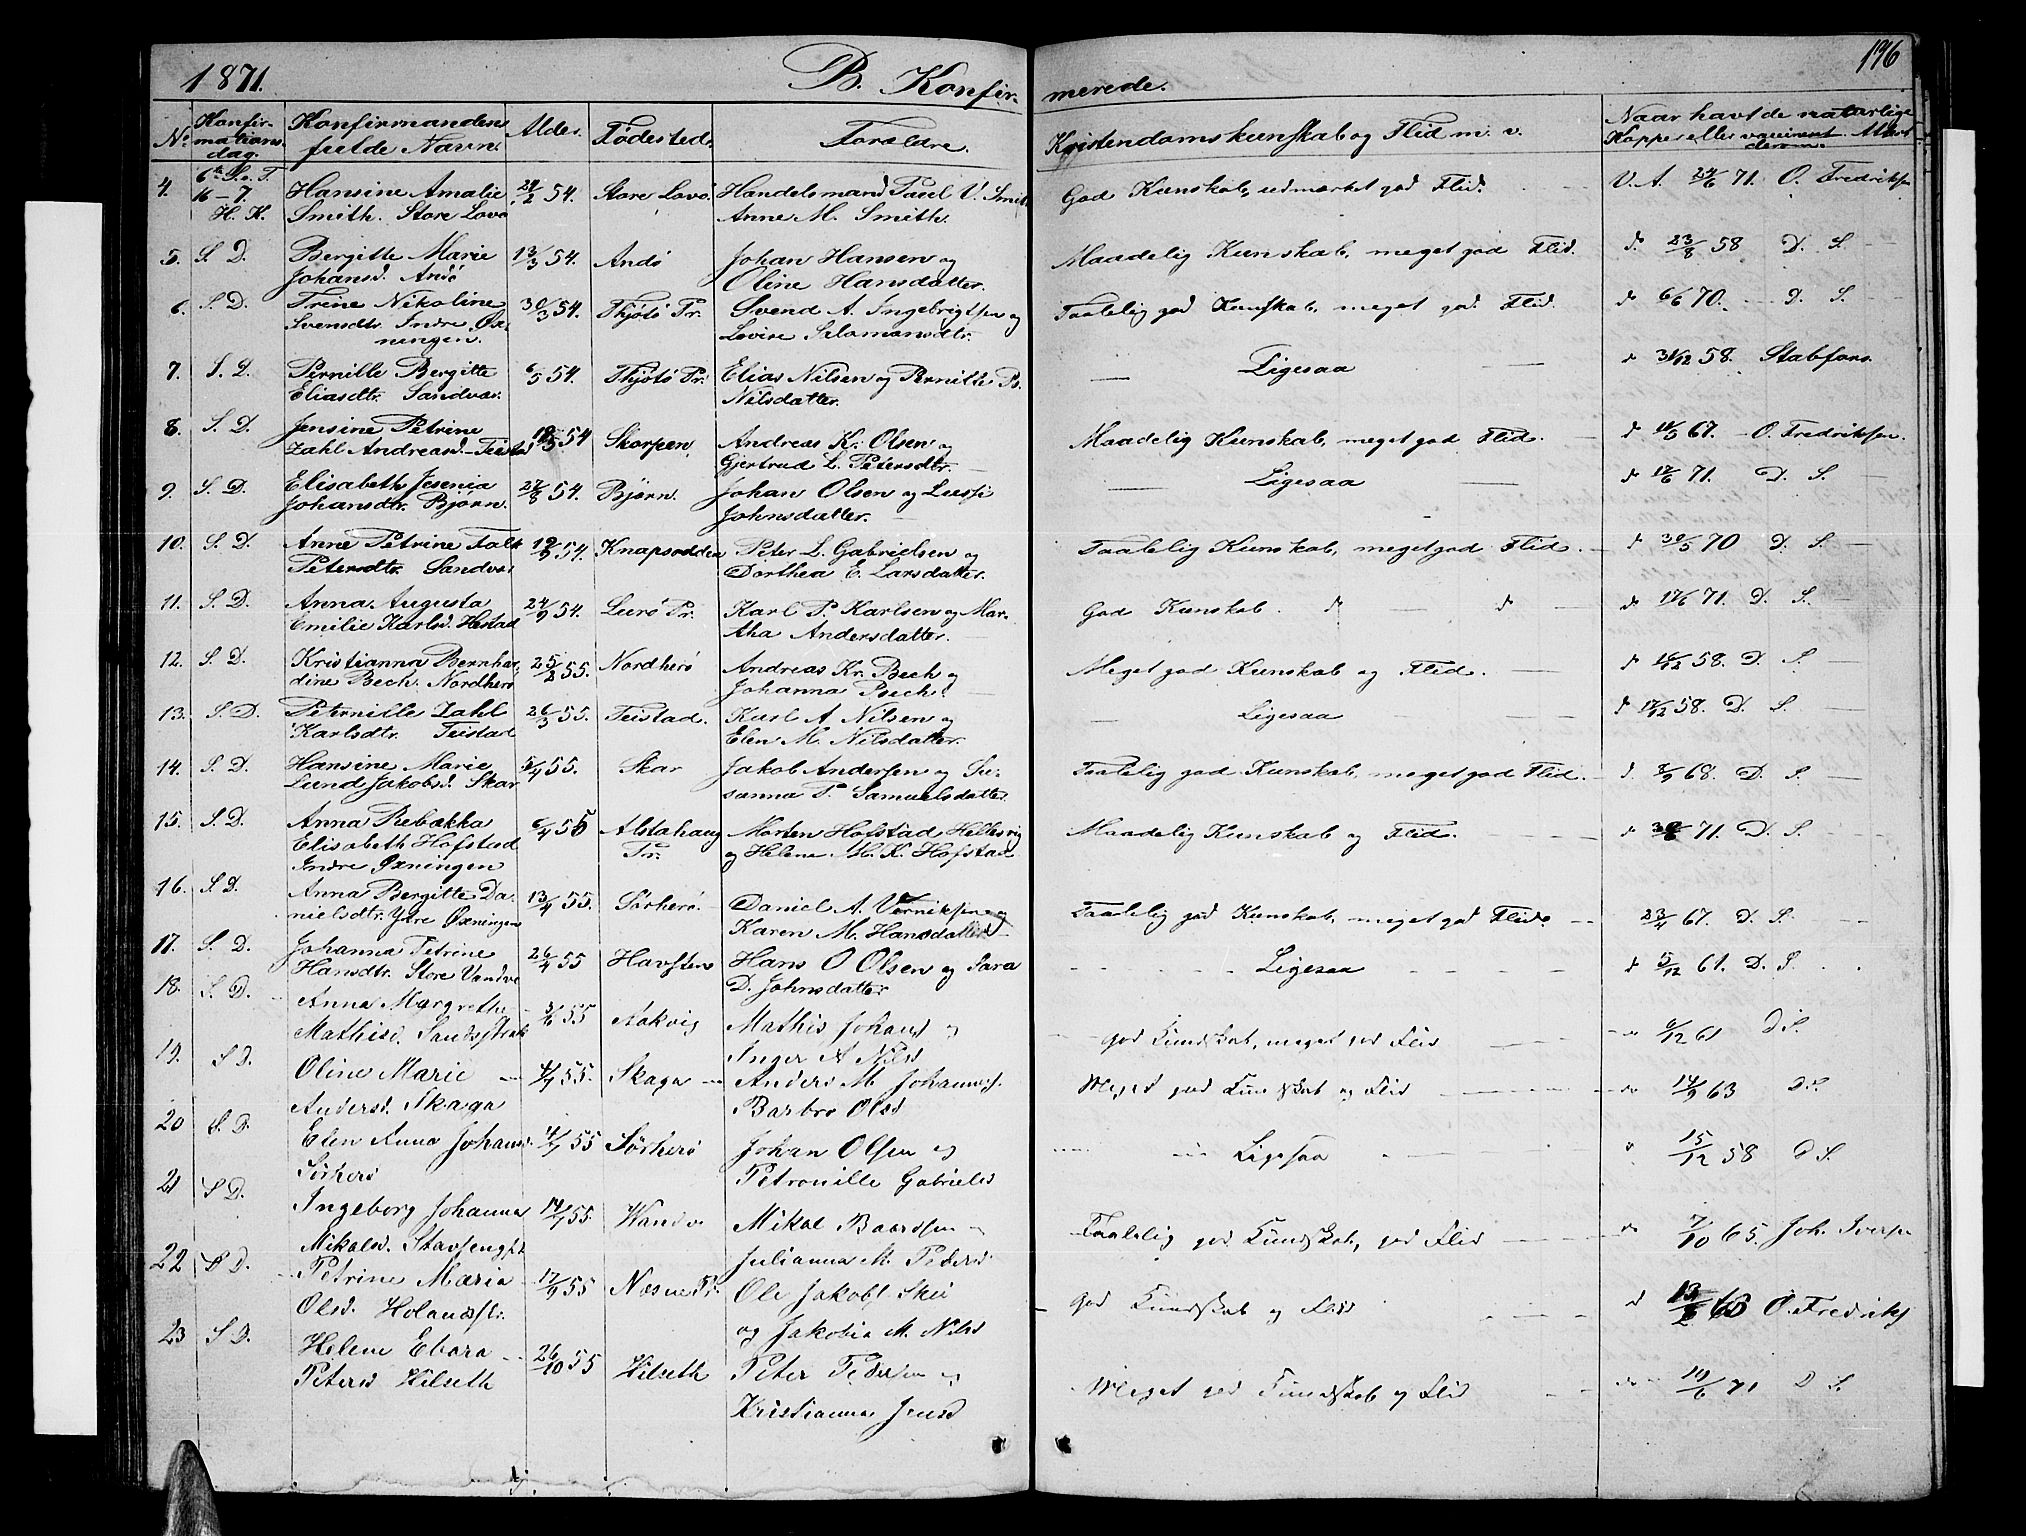 1871. B. Konfirmerede. 196
No Konfirmations dag. Konfirmandens fulde Navn. Alder. Fødested. Forældre. Kristendomskunskab og Flid m. v. Naar havt de naturlige Kopper eller vaccineret. Attest derom.
4. 6te S. e. T. Hansine Amalie 54. Store Lovø. Handelsmand Paul V. Smit God Kunskab, udmærket god Flid. V. A. 71. O. Fredriksen
16 - 7. H. K. Smith. Store Lovø Anne M. Smith.
5. S. D. Bergitte Marie 13/3 54. Andø Johan Hansen og Maadelig Kunskab, meget god Flid. d 23/8 58 D. S.
Johansd. Andø Oline Hansdatter.
6. S. D. Trine Nikoline 30/3 54. Thjøtø Pr. Svend A. Ingebrigtsen og Taalelig god Kunskab, meget god Flid. d 6/6 70. D. S.
Svensdtr. Indre Øxningen. Lovise Salamonsdtr.
7. S. D. Pernille Bergitte 6/5 54. Thjøtø Pr. Elias Nilsen og Pernille B. Ligesaa d 31/12 58. Stabfors.
Eliasdtr. Sandvær. Nilsdatter.
8. S. D. Jensine Petrine 54 Skorpen Andreas Kr. Olsen og Maadelig Kunskab, meget god Flid. d 67. O. Fredriksen.
Zahl Andreasd. Teistad Gjertrud L. Petersdtr.
9. S. D. Elisabeth Jesenia 27/8 54. Bjørn. Johan Olsen og Lussi Ligesaa d 71. D. S.
Johansdtr. Bjørn. Johnsdatter.
10. S. D. Anne Petrine Falk 19/9 54. Knapsodden Peter L. Gabrielsen og Taalelig Kunskab, meget god Flid. d 30/5 70 D. S.
Petersdtr. Sandvær Dorthea E. Larsdatter.
11. S. D. Anna Augusta 24/9 54. Lurø Pr. Karl P. Karlsen og Mar- God Kunskab. d d d 71. D. S.
Emilie Karlsd. Hestad tha Andersdatter.
12. S. D. Kristianna Bernhar- 25/2 55. Nordherø Andreas Kr. Bech og Meget god Kunskab og Flid. d 58. D. S.
dine Bech. Nordherø Johanna Bech.
13. S. D. Peternille Zahl 26/3 55. Teistad. Karl A. Nilsen og Ligesaa d 17/12 58. D. S.
Karlsdtr. Teistad Elen M. Nilsdatter.
14. S. D. Hansine Marie 55. Skar Jakob Andersen og Su- Taalelig god Kunskab, meget god Flid. d 68. D. S.
Lund Jakobsd. Skar sanna P. Samuelsdatter
15. S. D. Anna Rebækka 6/4 55 Alstahaug Morten Hofstad Hellesvig Maadelig Kunskab og Flid. d 71. D. S.
Elisabeth Hofstad Pr. og Helena M. K. Hofstad
Indre Øxningen
16. S. D. Anna Bergitte Da- 13/4 55. Sørherø. Daniel A. Verniksen og Taalelig god Kunskab, meget god Flid. 23/4 67. D. S.
nielsdtr. Ytre Øxningen Karen M. Hansdatter
17. S. D. Johanna Petrine 26/4 55 Havsten Hans O Olsen og Sara Ligesaa d 5/12 61. D. S.
Hansdtr. Store Vandve D. Johnsdatter
18. S. D. Anna Margrethe 3/6 55 Aakvig Mathis Johans og god Kundskab, meget god Flid 6/12 61 D S.
Mathisd. Sandstrak Inger A Nilsd
19. S D. Oline Marie 55. Skaga Anders M. Johannes. Meget god Kundskab og Flid 14/9 63 D. S.
Andersd. Skaga Barbro Olsd
20 S. D. Elen Anna Johansd. 55 Sörherö Johan Olsen og Ligesaa 15/12 58 D S.
Sörherö Petronille Gabrielsd
21 S D. Ingeborg Johanna 14/7 55. Vandve Mikal Baardsen og Taalelig god Kundskab, god Flid 7/10 65. Joh. Iversen
Mikalsd. Stavsengst Julianna M. Pedersd
22 S D. Petrine Maria 17/9 55 Næsne Pr. Ole Jakobs. Skei god Kundskab og Flid d O. Fredriks
Olsd. Holandsstr. og Jakobia M. Nilsd
23 S D. Helene Ebara 26/10 55 Hilseth Peter Pedersen og Meget god Kundskab og Flid 19/6 71 D S.
Petersd Hilseth Kristianna Jensd